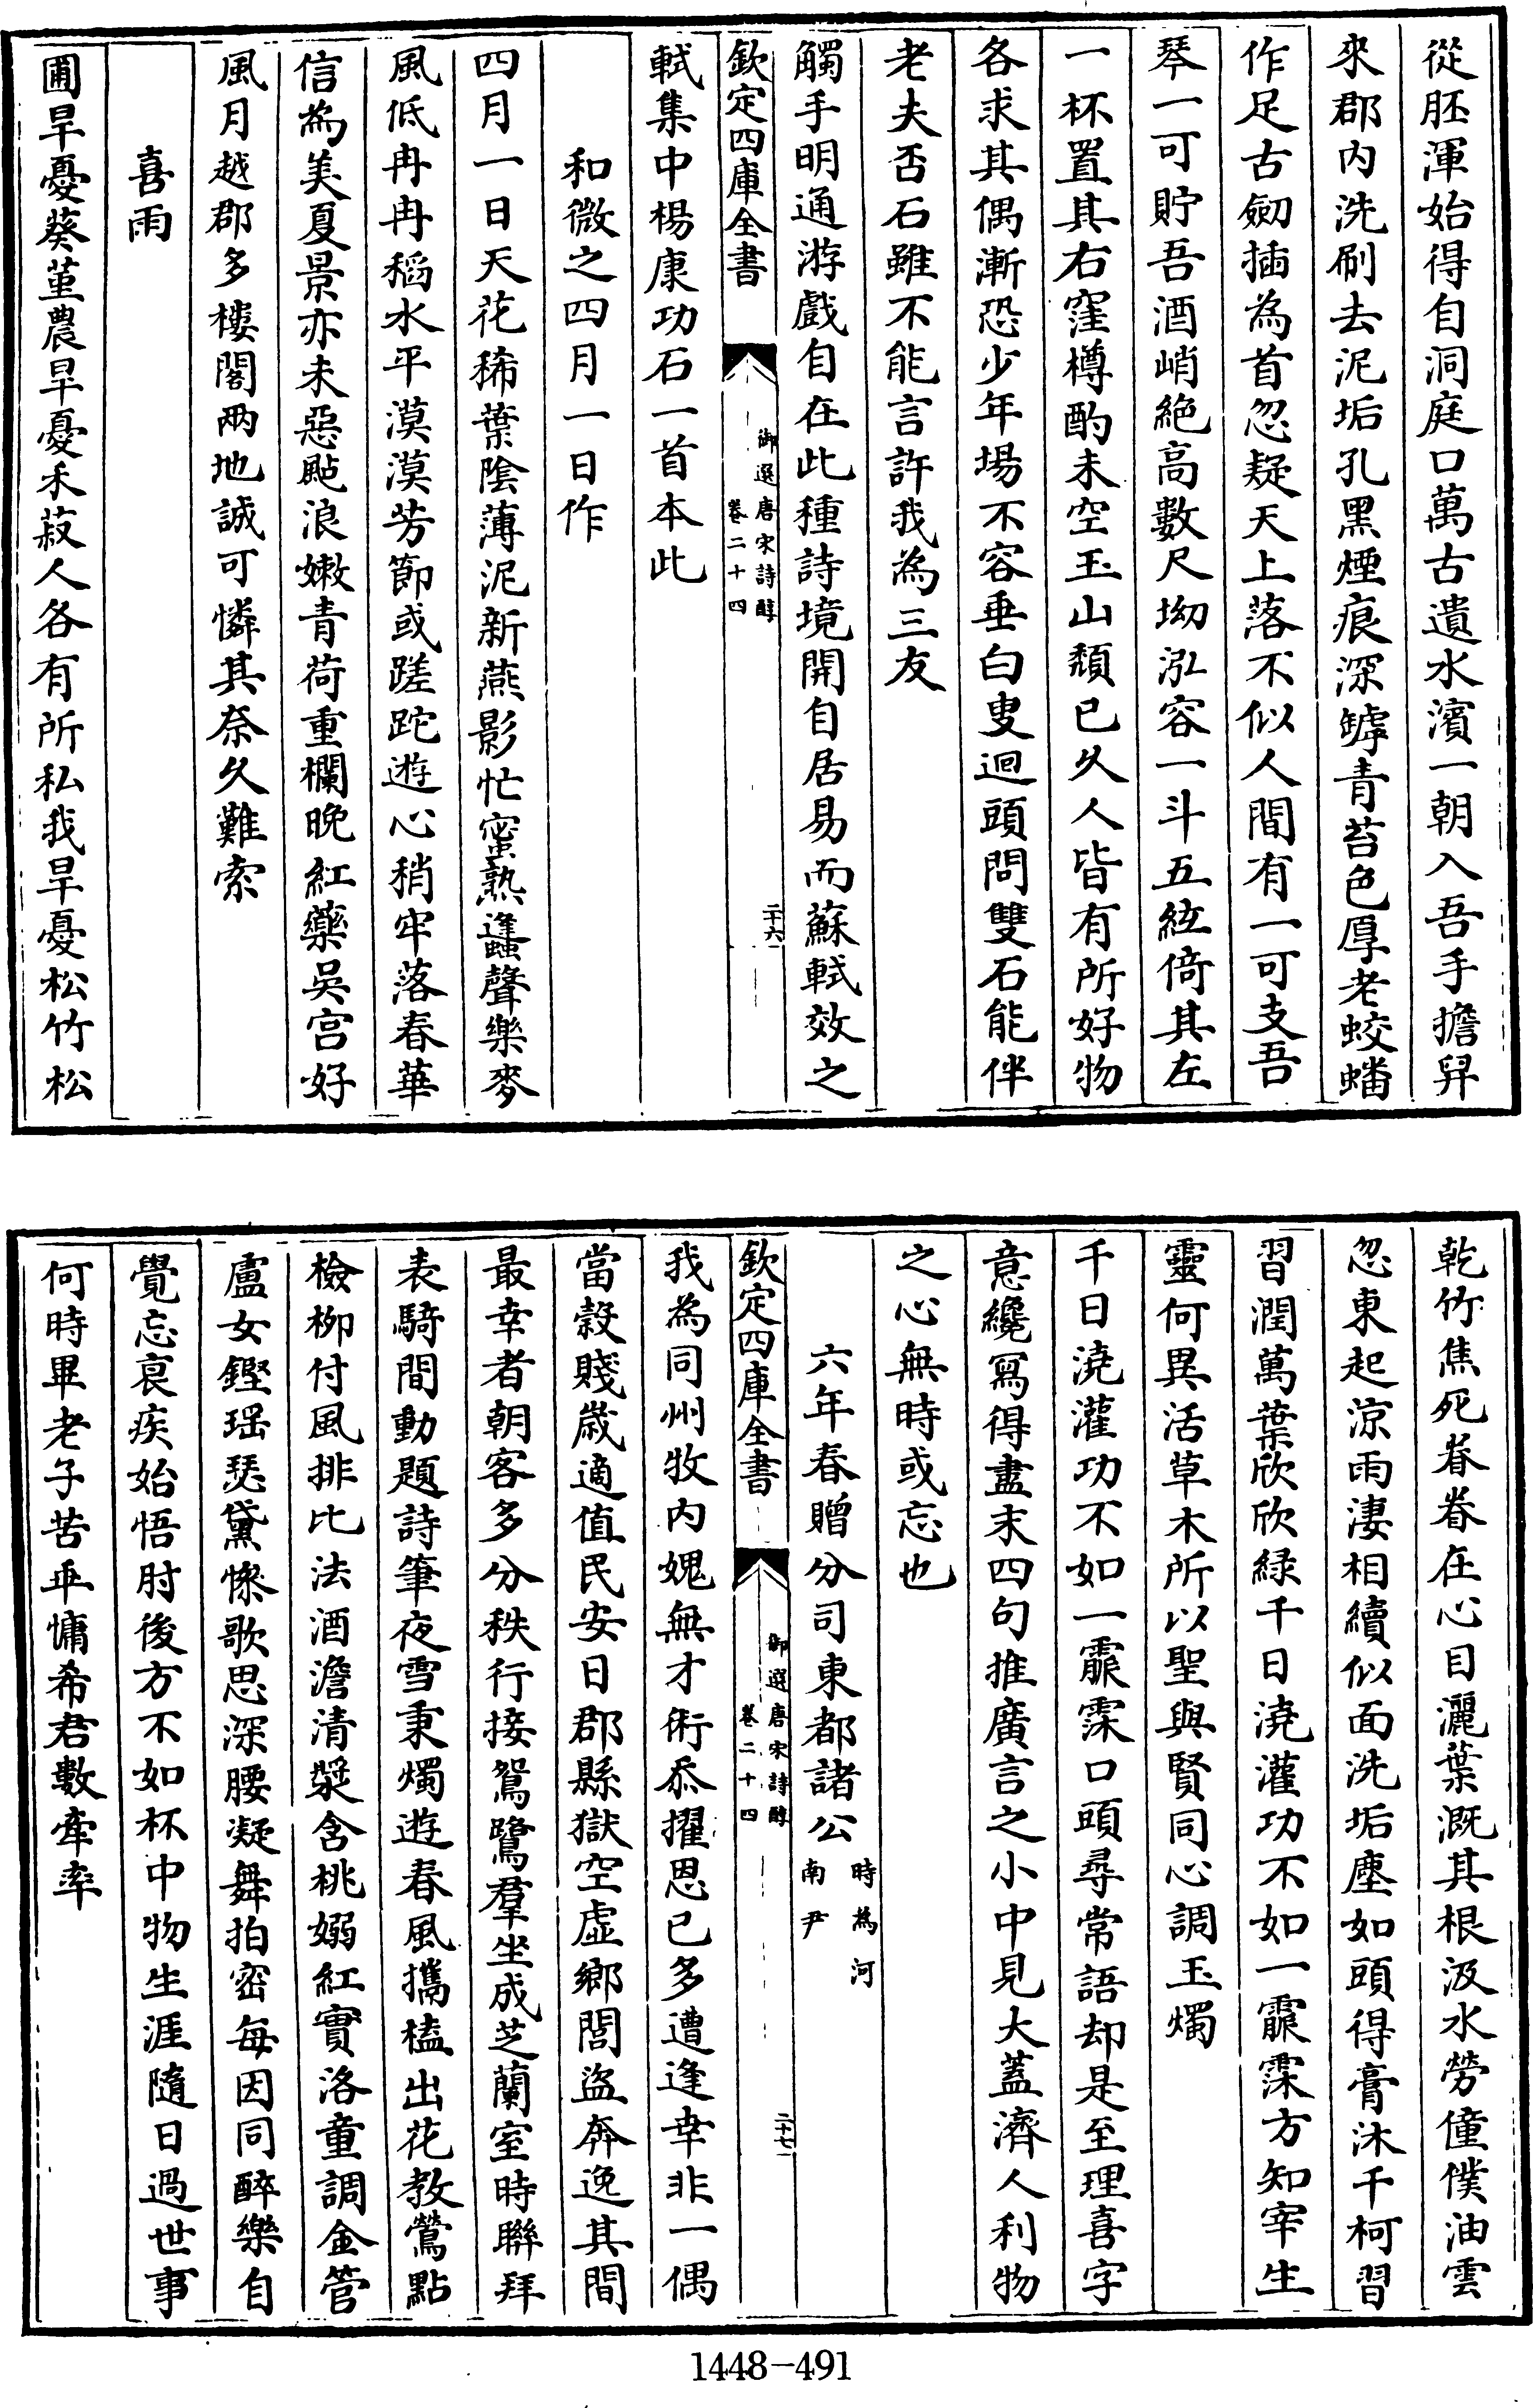 從胚渾始得自洞庭口萬古遺水濱一朝入吾手擔舁
來郡内洗刷去泥垢孔黑煙痕深罅青苔色厚老蛟蟠
作足古劒插為首忽疑天上落不似人間有一可支吾
琴一可貯吾酒峭絶高數尺坳泓容一斗五絃倚其左
一杯置其右窪樽酌未空玉山頽已久人皆有所好物
各求其偶漸恐少年場不容垂白叟迴頭問雙石能伴
老夫否石雖不能言許我為三友
觸手明通游戲自在此種詩境開自居易而蘇軾效之
欽定四庫全書
御選唐宋詩醇
卷二十四
二十六
軾集中楊康功石一首本此
和微之四月一日作
四月一日天花稀葉陰薄泥新燕影忙蜜熟蠭聲樂麥
風低冉冉稻水平漠漠芳節或蹉跎遊心稍牢落春華
信為美夏景亦未惡颭浪嫩青荷重欄晚紅藥吳宮好
風月越郡多樓閣兩地誠可憐其奈久難索
喜雨
圃旱憂葵堇農旱憂禾菽人各有所私我旱憂松竹松
乾竹焦死眷眷在心目灑葉溉其根汲水勞僮僕油雲
忽東起涼雨淒相續似面洗垢塵如頭得膏沐千柯習
習潤萬葉欣欣緑千日澆灌功不如一霢霂方知宰生
靈何異活草木所以聖與賢同心調玉燭
千日澆灌功不如一霢霂口頭尋常語却是至理喜字
意纔寫得盡末四句推廣言之小中見大蓋濟人利物
之心無時或忘也
六年春贈分司東都諸公時為河南尹
欽定四庫全書
御選唐宋詩醇
卷二十四
二十七
我為同州牧内媿無才術忝擢恩已多遭逢幸非一偶
當穀賤歲適值民安日郡縣獄空虛鄉閭盜奔逸其間
最幸者朝客多分秩行接鴛鷺羣坐成芝蘭室時聯拜
表騎間動題詩筆夜雪秉燭遊春風攜榼出花教鶯點
檢柳付風排比法酒澹清漿含桃嫋紅實洛童調金管
盧女鏗瑶瑟黛慘歌思深腰凝舞拍密每因同醉樂自
覺忘衰疾始悟肘後方不如杯中物生涯隨日過世事
何時畢老子苦乖慵希君數牽率
1448-491